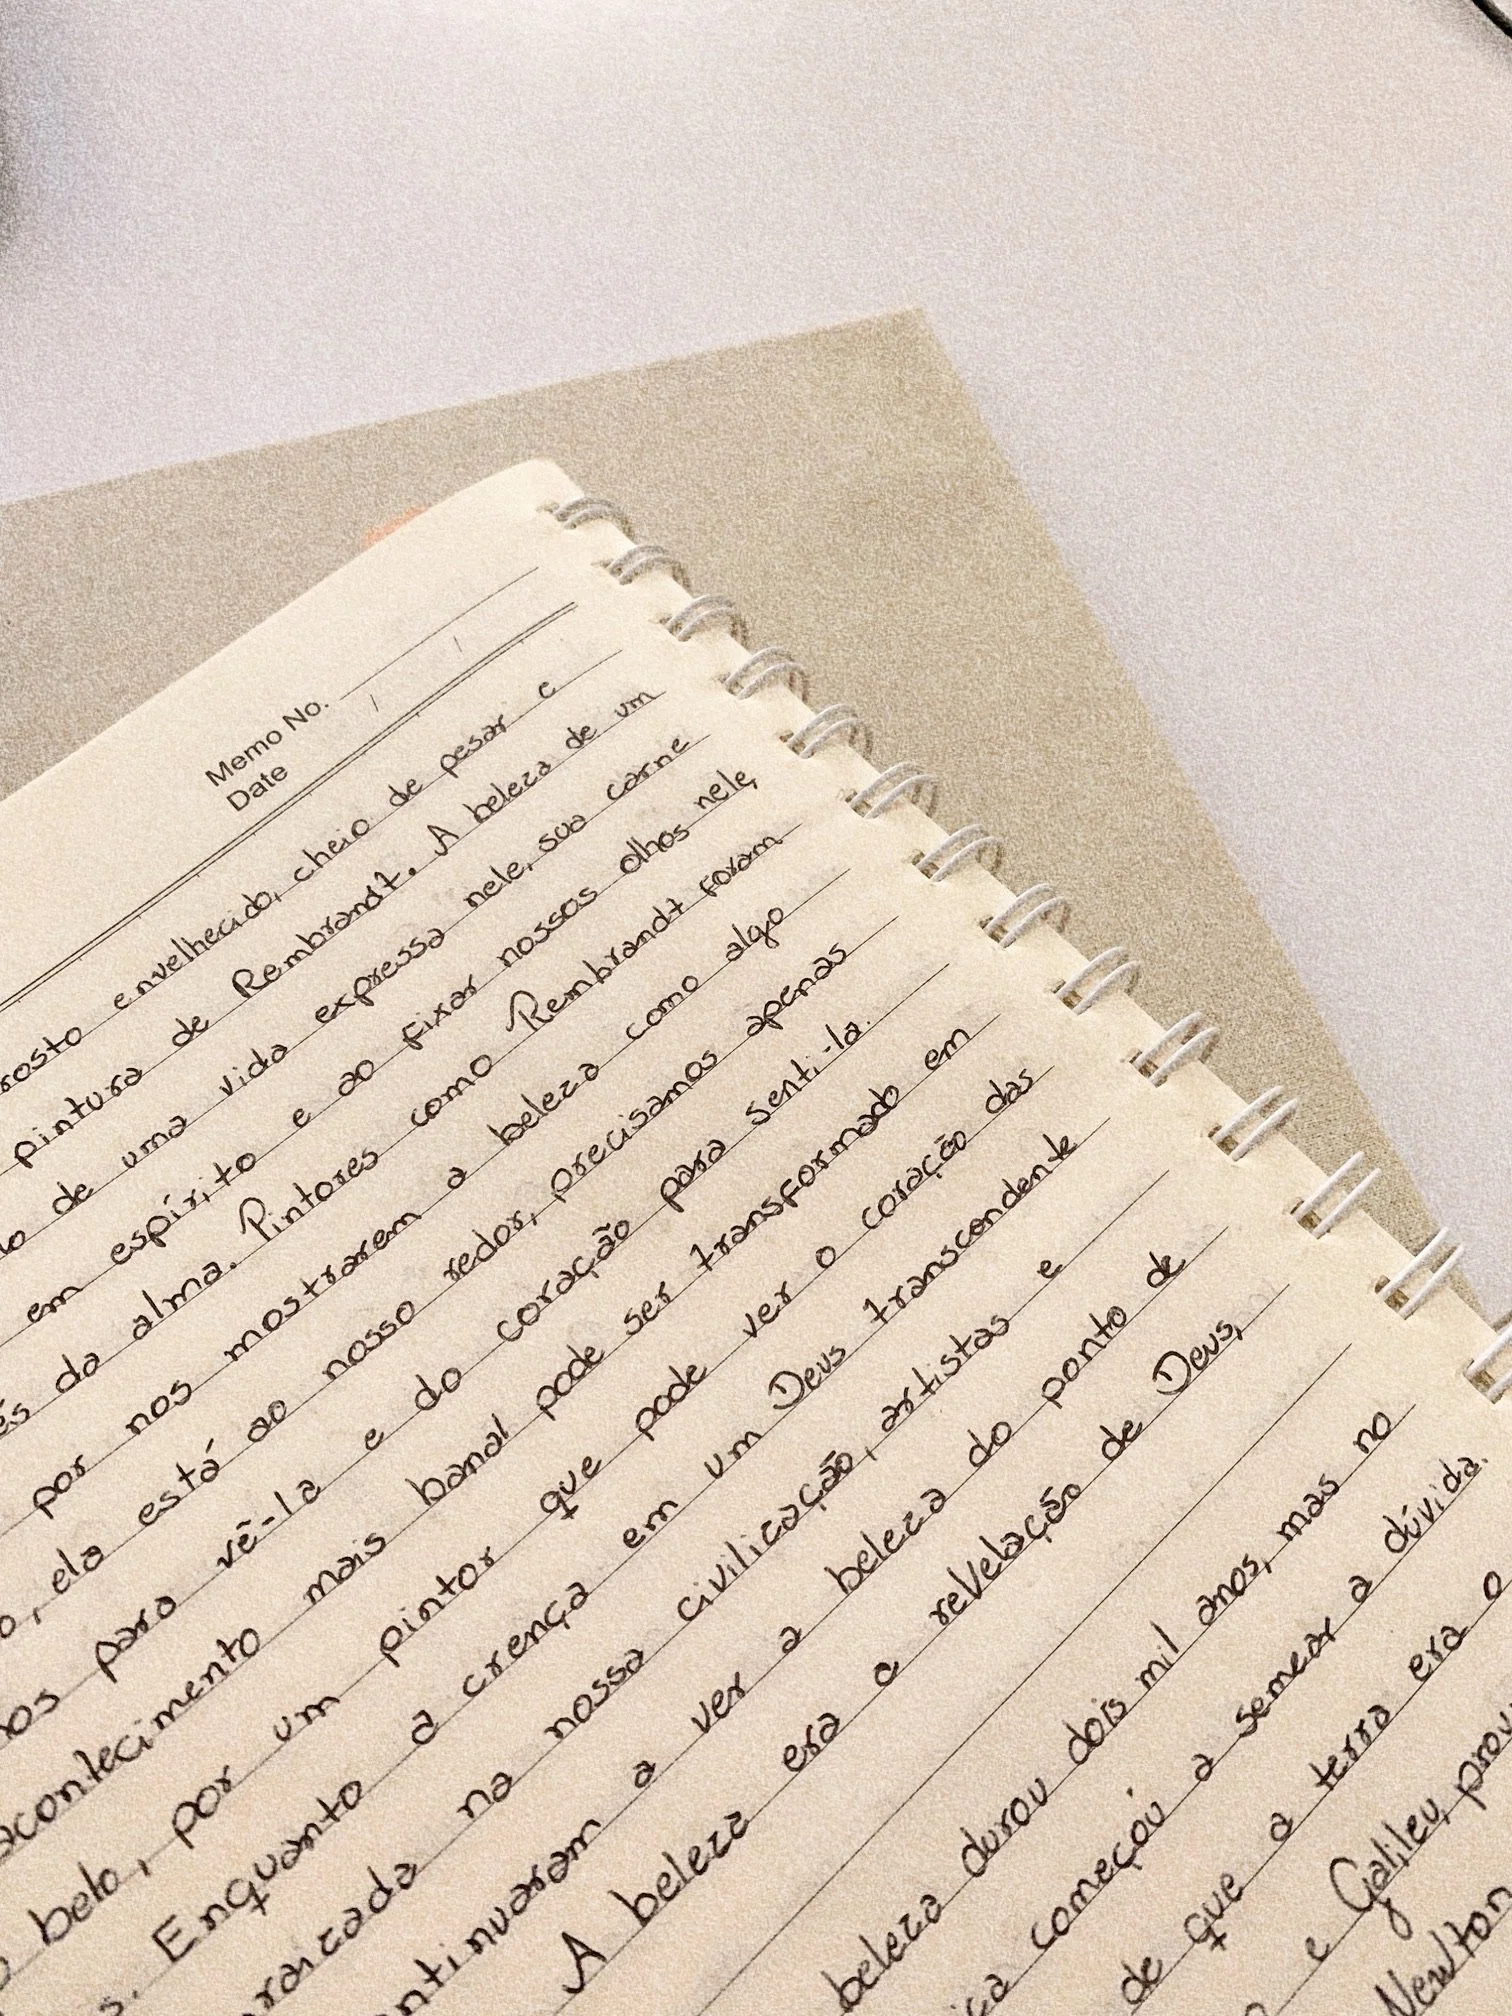 Memo No.
Date / /
rosto envelhecido, cheio de pesar e
pintura de Rembrandt. A beleza de um
de uma vida expressa nele, sua carne
em espírito e ao fixar nossos olhos nele,
da alma. Pintores como Rembrandt foram
por nos mostrarem a beleza como algo
, ela está ao nosso redor, precisamos apenas
para vê-la e do coração para senti-la.
acontecimento mais banal pode ser transformado em
belo, por um pintor que pode ver o coração das
. Enquanto a crença em um Deus transcendente
na nossa civilização, artistas e
a ver a beleza do ponto de
A beleza era a revelação de Deus,
beleza durou dois mil anos, mas no
começou a semear a dúvida.
de que a terra era o
e Galileu,
Newton